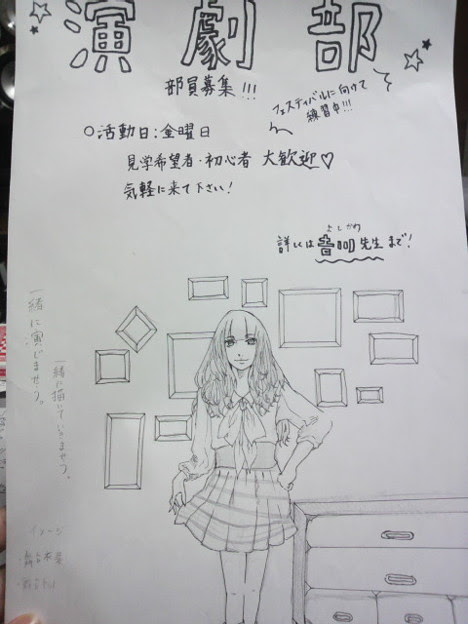 演劇部
部員募集!!!
フェスティバルに向けて
練習中!!!
○活動日:金曜日
見学希望者・初心者 大歓迎♡
気軽に来て下さい!
よしかわ
詳しくは 先生まで!
一緒に演じませう。
一緒に描いていきませう。
イメージ